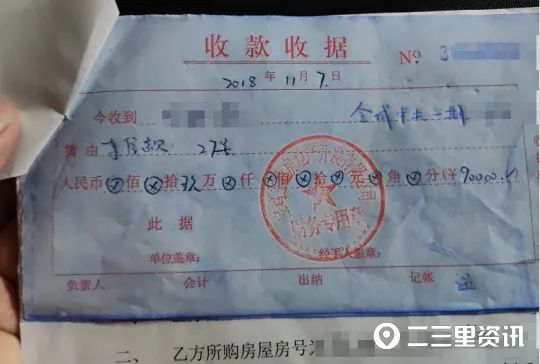 收款收据 No. 3
2018年11月7日
今收到 金城中央一期
摘由 房款 27号
人民币 ⊗佰⊗拾玖万⊗仟⊗佰⊗拾⊗元⊗角⊗分(¥90000.
此据
财务专用章
单位盖章: 经手人盖章:
负责人 会计 出纳 记帐
二、 乙方所购房屋房号为
二三里资讯